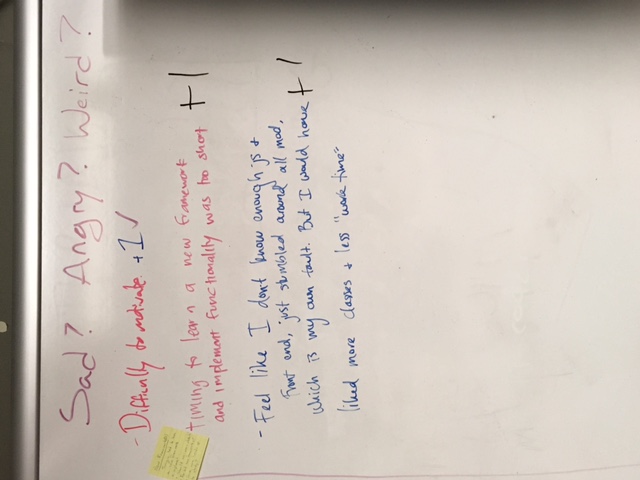 Sad? Angry? Weird?
- Difficulty to motivate. +1 ✓
- timing to learn a new framework
and implement functionality was too short +1
- Feel like I don't know enough js +
front end, just stumbled around all mod,
which is my own fault. But I would have +1
liked more classes + less "work time"